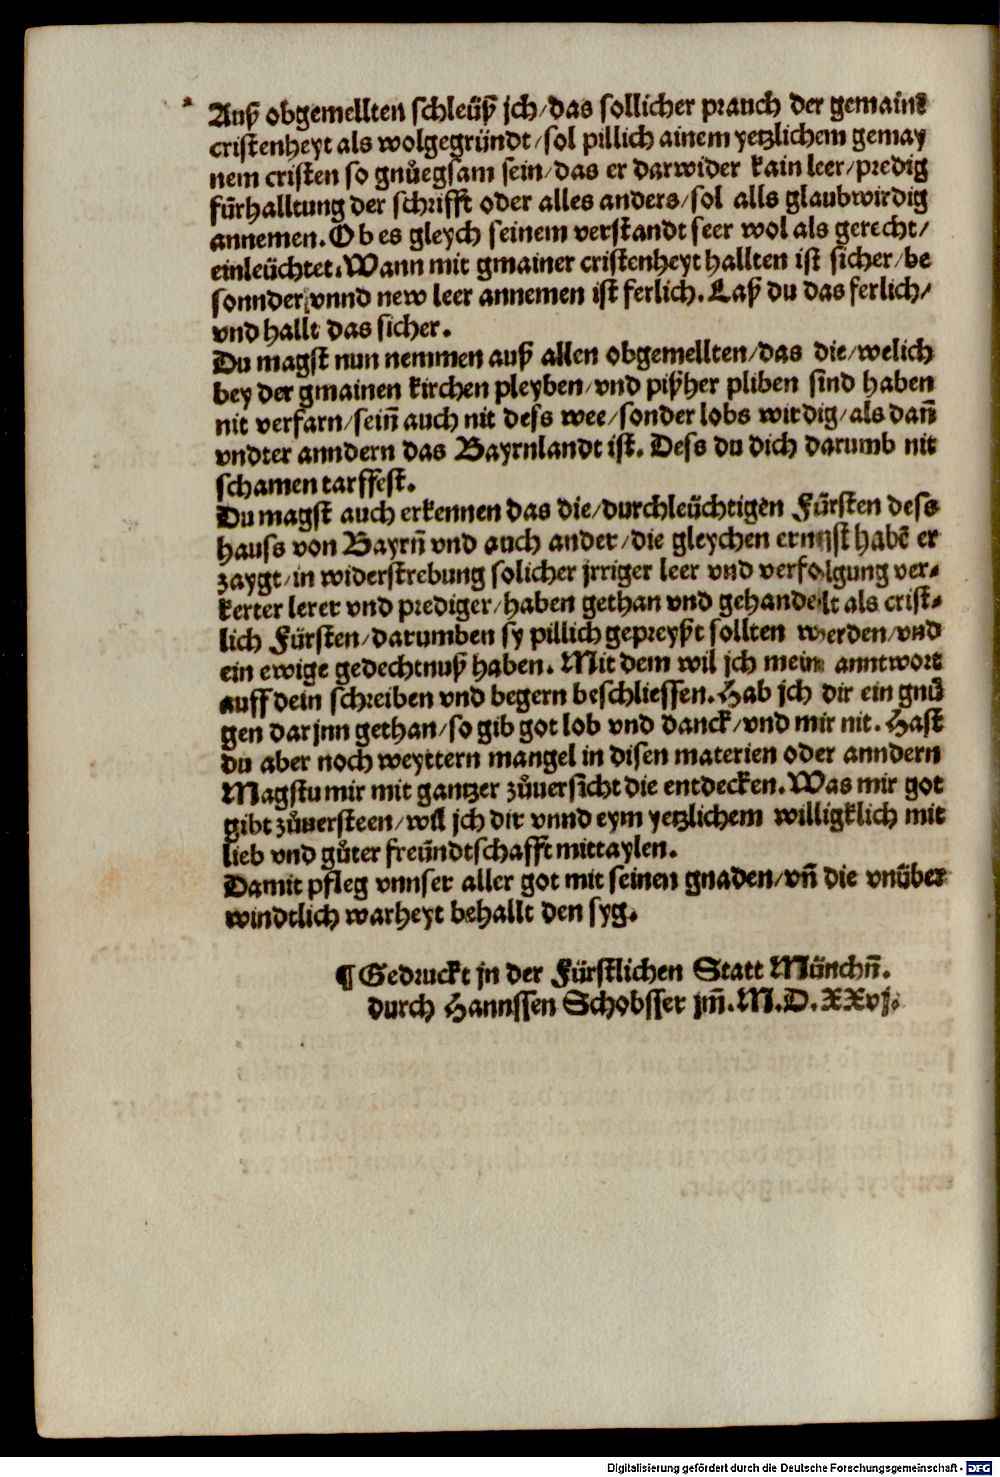 Auß obgemellten schleüß jch/das sollicher prauch der gemaine
cristenheyt als wolgegründt/sol pillich ainem yetzlichem gemay
nem cristen so gnůegsam sein/das er darwider kain leer/predig
fürhalltung der schrifft oder alles anders/sol alls glaubwirdig
annemen. Ob es gleych seinem verstandt seer wol als gerecht/
einleüchtet. Wann mit gmainer cristenheyt hallten ist sicher/be
sonnder/vnnd new leer annemen ist ferlich. Laß du das ferlich/
vnd hallt das sicher.
Du magst nun nemmen auß allen obgemellten/das die/welich
bey der gmainen kirchen pleyben/vnd pißher pliben sind haben
nit verfarn/sein̄ auch nit dess wee/sonder lobs wirdig/als dan̄
vndter anndern das Bayrnlandt ist. Dess du dich darumb nit
schamen tarffest.
Du magst auch erkennen das die/durchleüchtigen Fürsten dess
hauss von Bayrn̄ vnd auch ander/die gleychen ernnst habē er
zaygt/in widerstrebung solicher jrriger leer vnd verfolgung ver-
kerter lerer vnd prediger/haben gethan vnd gehandelt als crist-
lich Fürsten/darumben sy pillich gepreyßt sollten werden/vnd
ein ewige gedechtnuß haben. Mit dem wil jch mein anntwort
auff dein schreiben vnd begern beschliessen. Hab jch dir ein gnů
gen darjnn gethan/so gib got lob vnd danck/vnd mir nit. Hast
du aber noch weyttern mangel in disen materien oder anndern
Magstu mir mit gantzer zůuersicht die entdecken. Was mir got
gibt zůuersteen/will jch dir vnnd eym yetzlichem willigklich mit
lieb vnd gůter freündtschafft mittaylen.
Damit pfleg vnnser aller got mit seinen gnaden/vn̄ die vnüber
windtlich warheyt behallt den syg.
¶ Gedruckt jn der Fürstlichen Statt Münchn̄.
durch Hannssen Schobsser jm̄. M.D.XXvj.
Digitalisierung gefördert durch die Deutsche Forschungsgemeinschaft - DFG